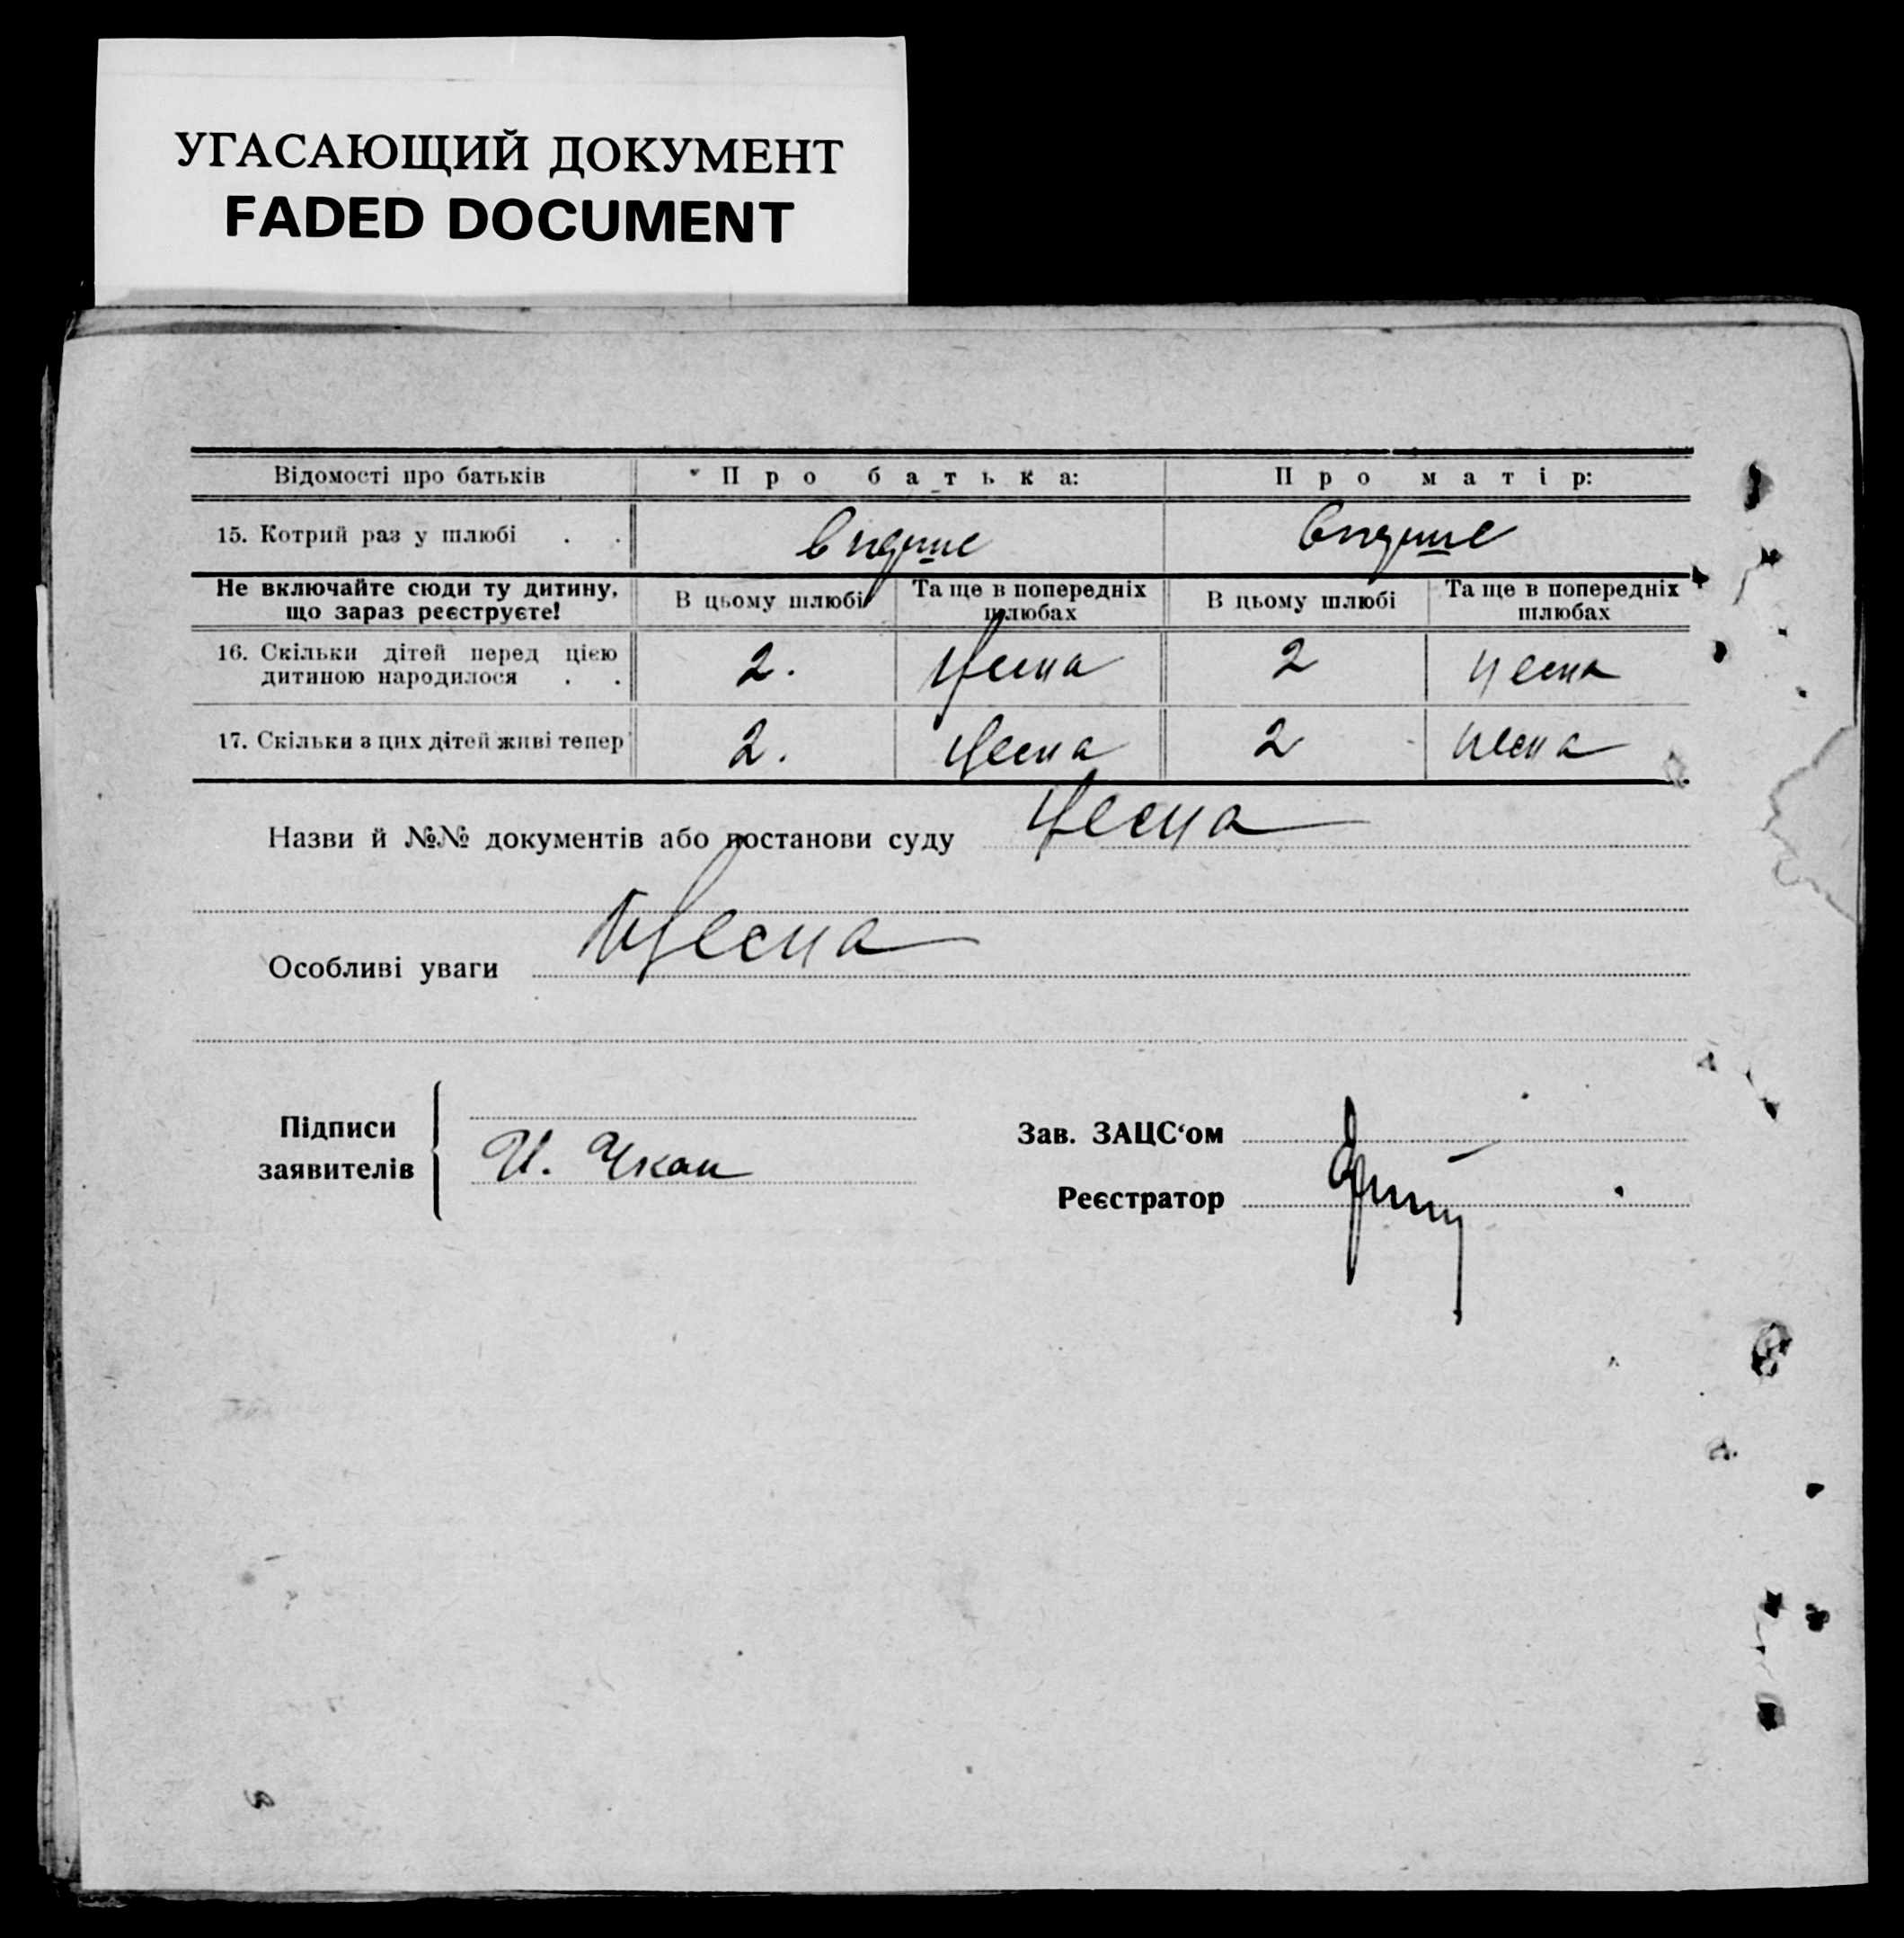 УГАСАЮЩИЙ ДОКУМЕНТ
FADED DOCUMENT
Відомості про батьків
Про батька:
Про матір:
15. Котрий раз у шлюбі . .
вперше
вперше
Не включайте сюди ту дитину,
що зараз реєструєте!
В цьому шлюбі
Та ще в попередніх
шлюбах
В цьому шлюбі
Та ще в попередніх
шлюбах
16. Скільки дітей перед цією
дитиною народилося . .
2.
Нема
2
нема
17. Скільки з цих дітей живі тепер
2.
Нема
2
нема
Назви й №№ документів або постанови суду Нема
Особливі уваги Нема
Підписи
заявителів
И. Чкан
Зав. ЗАЦС‘ом
Реєстратор